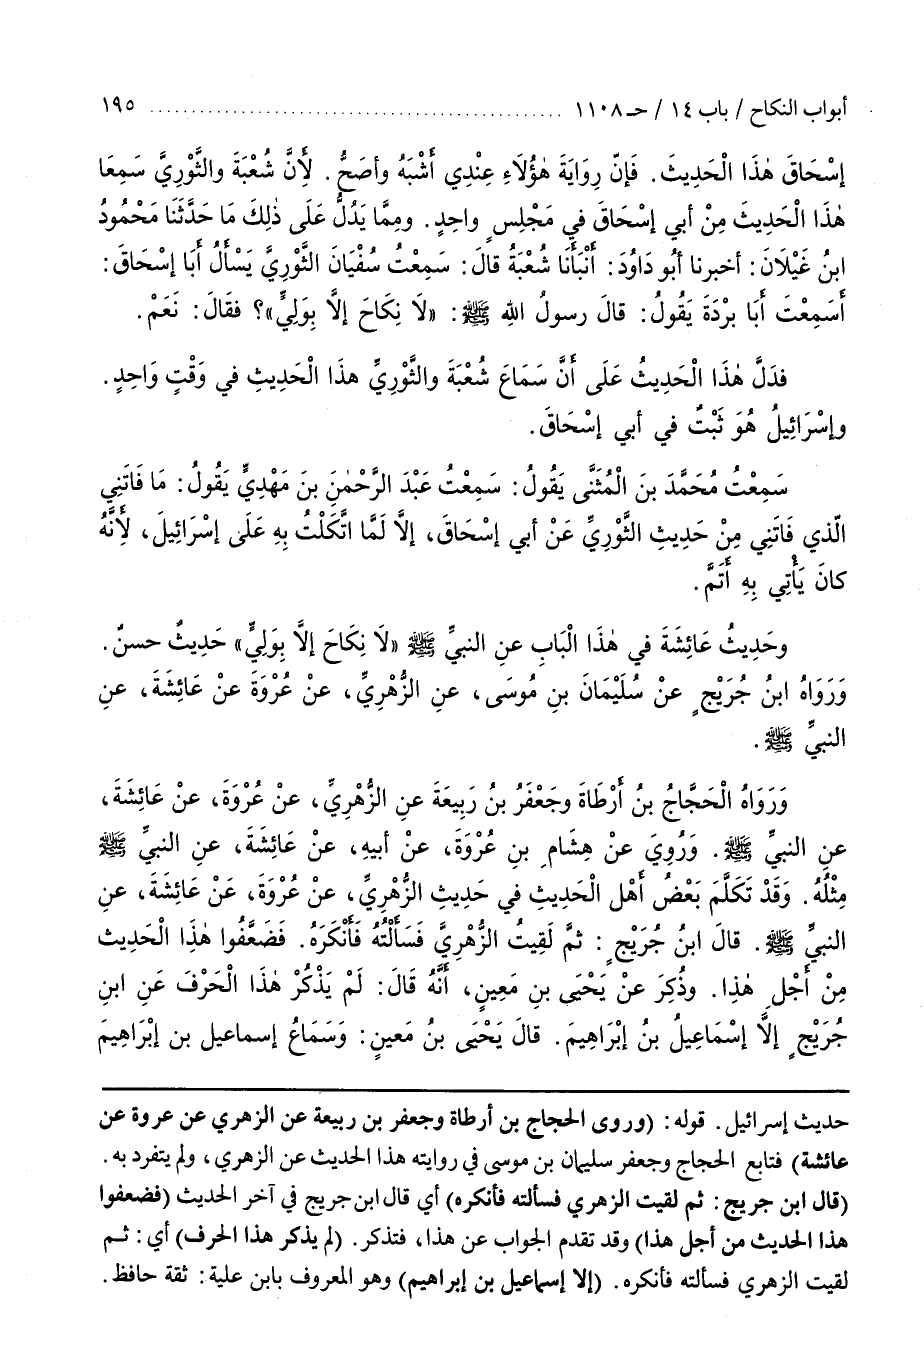 أبواب النكاح / باب ١٤ / حـ ١١٠٨ ............................................................ ١٩٥
إسْحَاقَ هٰذَا الْحَدِيثَ. فَإنّ رِوَايَةَ هٰؤُلَاءِ عِنْدِي أَشْبَهُ وأصَحُّ. لِأَنَّ شُعْبَةَ والثَّوْرِيَّ سَمِعَا
هٰذَا الْحَدِيثَ مِنْ أبي إسْحَاقَ في مَجْلِسٍ واحِدٍ. ومِمَّا يَدُلُّ عَلَى ذٰلِكَ مَا حَدَّثَنَا مَحْمُودُ
ابنُ غَيْلَانَ: أخبرنا أبُو دَاوُدَ: أَنْبَأَنَا شُعْبَةُ قالَ: سَمِعْتُ سُفْيَانَ الثَّوْرِيَّ يَسْأَلُ أَبَا إسْحَاقَ:
أَسَمِعْتَ أَبَا بُرْدَةَ يَقُولُ: قالَ رسولُ اللهِ ﷺ: «لَا نِكَاحَ إلَّا بِوَلِيٍّ»؟ فقَالَ: نَعَمْ.
فدَلَّ هٰذَا الْحَدِيثُ عَلَى أَنَّ سَمَاعَ شُعْبَةَ والثَّوْرِيِّ هذَا الْحَدِيثِ في وَقْتٍ وَاحِدٍ.
وإسْرَائِيلُ هُوَ ثَبْتٌ في أبي إسْحَاقَ.
سَمِعْتُ مُحَمَّدَ بنَ الْمُثَنَّى يَقُولُ: سَمِعْتُ عَبْدَ الرَّحْمٰنِ بنَ مَهْدِيٍّ يَقُولُ: مَا فَاتَنِي
الّذي فَاتَنِي مِنْ حَدِيثِ الثَّوْرِيِّ عَنْ أبي إسْحَاقَ، إلَّا لَمَّا اتَّكَلْتُ بِهِ عَلَى إسْرَائِيلَ، لِأَنَّهُ
كانَ يَأْتِي بِهِ أَتَمَّ.
وحَدِيثُ عَائِشَةَ في هٰذَا الْبَابِ عنِ النبيِّ ﷺ «لَا نِكَاحَ إلَّا بِوَلِيٍّ» حَدِيثٌ حسنٌ.
وَرَوَاهُ ابنُ جُرَيْجٍ عنْ سُلَيْمَانَ بنِ مُوسَى، عنِ الزُّهْرِيِّ، عنْ عُرْوَةَ عنْ عَائِشَةَ، عنِ
النبيِّ ﷺ.
وَرَوَاهُ الْحَجَّاجُ بنُ أَرْطَاةَ وجَعْفَرُ بنُ رَبِيعَةَ عنِ الزُّهْرِيِّ، عنْ عُرْوَةَ، عنْ عَائِشَةَ،
عنِ النبيِّ ﷺ. وَرُوِيَ عنْ هِشَامِ بنِ عُرْوَةَ، عنْ أبيهِ، عنْ عَائِشَةَ، عنِ النبيِّ ﷺ
مِثْلُهُ. وَقَدْ تَكَلَّمَ بَعْضُ أهْلِ الْحَدِيثِ في حَدِيثِ الزُّهْرِيِّ، عنْ عُرْوَةَ، عَنْ عَائِشَةَ، عنِ
النبيِّ ﷺ. قالَ ابنُ جُرَيْجٍ: ثمَّ لَقِيتُ الزُّهْرِيَّ فَسَأَلْتُهُ فَأَنْكَرَهُ. فَضَعَّفُوا هٰذَا الْحَدِيثَ
مِنْ أَجْلِ هٰذِا. وذُكِرَ عنْ يَحْيَى بنِ مَعِينٍ، أَنَّهُ قَالَ: لَمْ يَذْكُرْ هٰذَا الْحَرْفَ عَنِ ابنِ
جُرَيْجٍ إلَّا إسْمَاعِيلُ بنُ إبْرَاهِيمَ. قالَ يَحْيَى بنُ مَعينٍ: وَسَمَاعُ إسماعيل بن إبْرَاهِيمَ
حديث إسرائيل. قوله: (وروى الحجاج بن أرطاة وجعفر بن ربيعة عن الزهري عن عروة عن
عائشة) فتابع الحجاج وجعفر سليمان بن موسى في روايته هذا الحديث عن الزهري، ولم يتفرد به.
(قال ابن جريج: ثم لقيت الزهري فسألته فأنكره) أي قال ابن جريج في آخر الحديث (فضعفوا
هذا الحديث من أجل هذا) وقد تقدم الجواب عن هذا، فتذكر. (لم يذكر هذا الحرف) أي: ثم
لقيت الزهري فسألته فأنكره. (إلا إسماعيل بن إبراهيم) وهو المعروف بابن علية: ثقة حافظ.